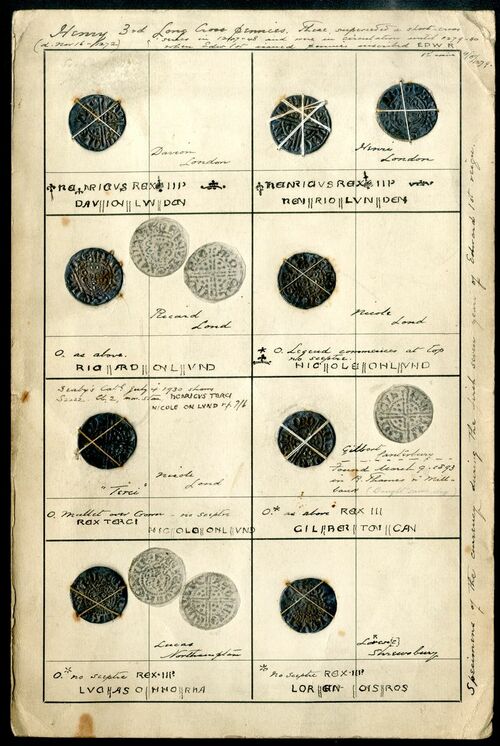 Henry 3rd Long Cross Pennies. These superseded a short-cross
(d. Nov 16-1272) series in 1247-48 and were in circulation until 1279-80
when Edwd 1st issued pennies inscribed EDW R
Davion
London
Henri
London
HENRICVS REX III
DAV ION LVN DEN
HENRICVS REX III
HEN RIO LVN DEN
Ricard
Lond
Nicole
Lond
O. as above.
RIC ARD ONL VND
* O. Legend commences at top
no sceptre.
NIC OLE ONL VND
Seaby's Catg July 1930 shows
HENRICVS TERCI
NICOLE ON LVND
7/6
Nicole
Lond
"Terci"
Gilbert
Canterbury
Found March 9-1893
in R. Thames at Mill-
bank
O. Mullet over Crown - no sceptre
REX TERCI
NIC OLE ONL VND
O.* as above REX III
GIL BER TON CAN
Lucas
Northampton
Shrewsbury
O.* no sceptre REX III
LVC AS O NHO RHA
* no sceptre REX III
LOR EN OIS ROS
Specimens of the currency during the first seven years of Edward 1st reign.